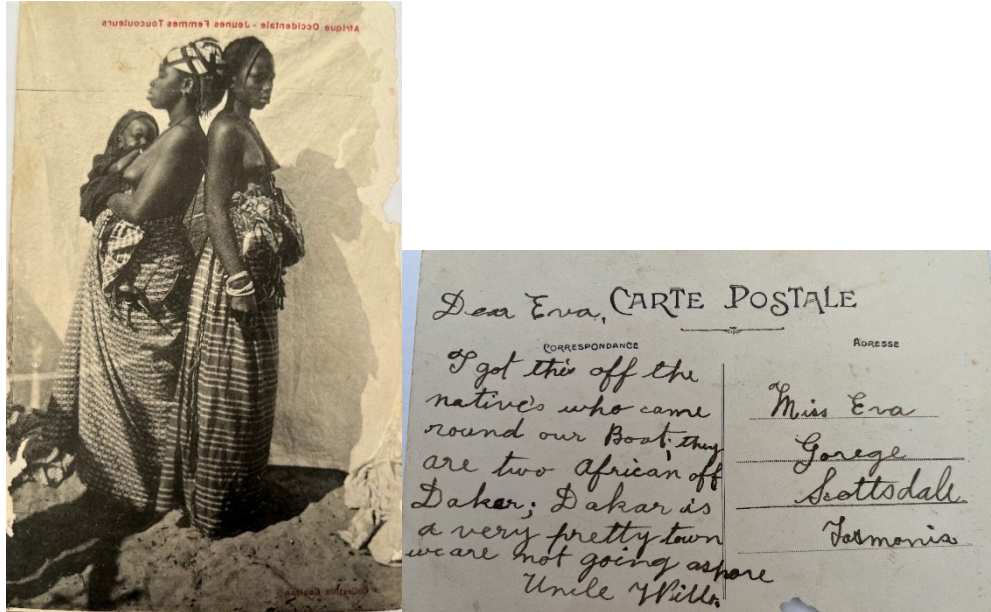 Afrique Occidentale - Jeunes Femmes Toucouleurs
Collection Gautron
CARTE POSTALE
CORRESPONDANCE
ADRESSE
Dear Eva,
I got this off the
native's who came
round our Boat; they
are two african off
Daker; Dakar is
a very pretty town
we are not going ashore
Uncle Will.
Miss Eva
Gorege
Scottsdale
Tasmonia